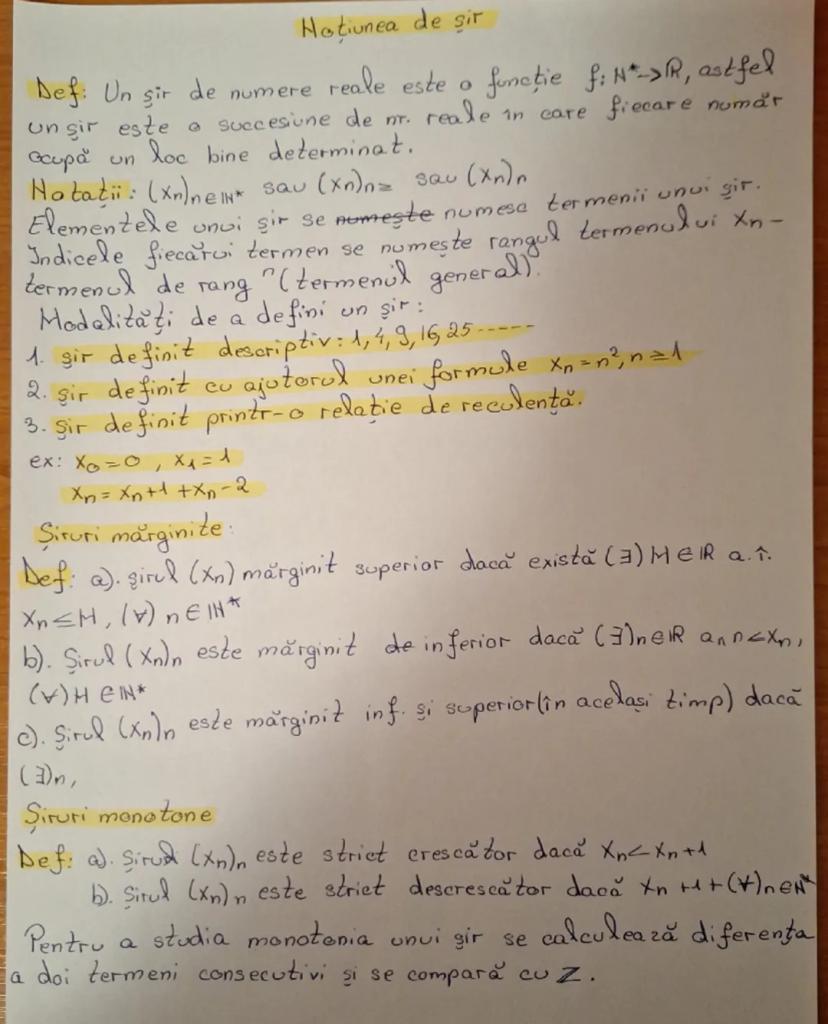 Noțiunea de șir
Def: Un șir de numere reale este o funcție f: N*->R, astfel
un șir este o succesiune de nr. reale în care fiecare număr
ocupă un loc bine determinat.
Notații: (Xn)n∈N* sau (Xn)n≥ sau (Xn)n
Elementele unui șir se numește numesc termenii unui șir.
Indicele fiecărui termen se numește rangul termenului Xn –
termenul de rang "(termenul general).
Modalități de a defini un șir:
1. șir definit descriptiv: 1, 4, 9, 16, 25 -----
2. șir definit cu ajutorul unei formule Xn = n², n ≥ 1
3. șir definit printr-o relație de reculență.
ex: X₀ = 0 , X₁ = 1
Xn = Xn+1 + Xn-2
Șiruri mărginite:
Def: a). șirul (Xn) mărginit superior dacă există (∃) M ∈ R a. î.
Xn ≤ M , (∀) n ∈ N*
b). Șirul (Xn)n este mărginit de inferior dacă (∃)n∈R a n n<Xn,
(∀)M ∈ N*
c). Șirul (Xn)n este mărginit inf. și superior(în același timp) dacă
(∃)n,
Șiruri monotone
Def: a). Șirul (Xn)n este strict crescător dacă Xn< Xn+1
b). Șirul (Xn)n este strict descrescător dacă Xn +1+(∀)n∈N*
Pentru a studia monotonia unui șir se calculează diferența
a doi termeni consecutivi și se compară cu Z.